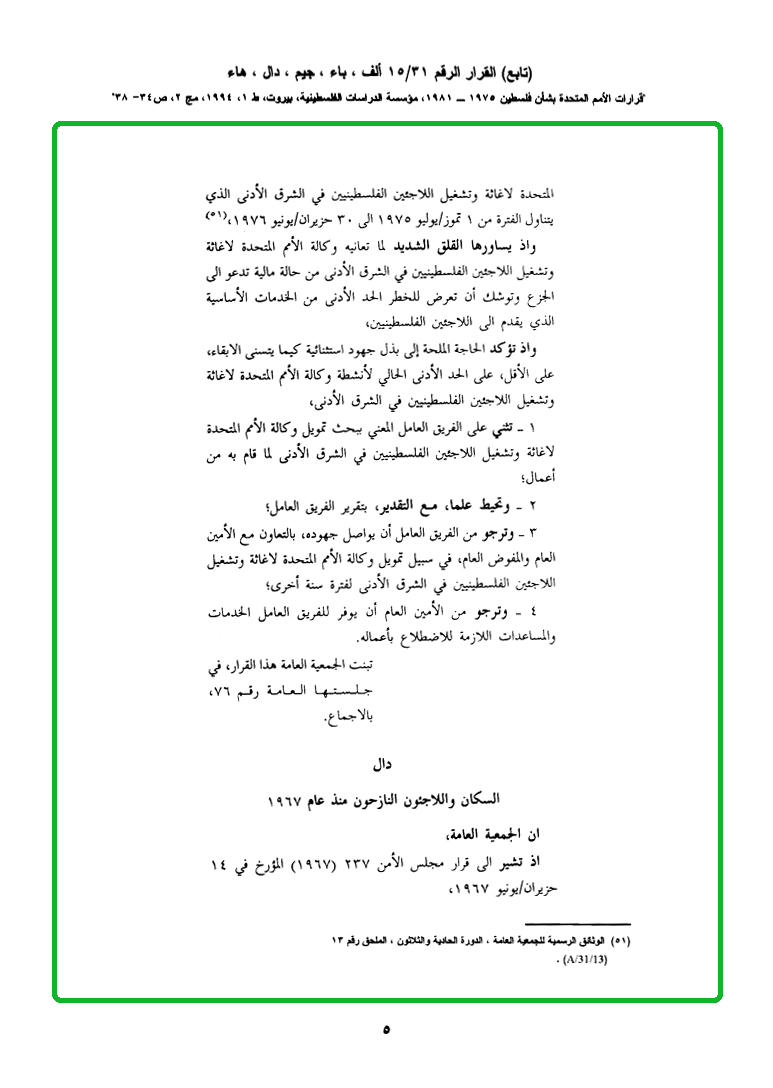 (تابع) القرار الرقم ١٥/٣١ ألف ، باء ، جيم ، دال ، هاء
"قرارات الأمم المتحدة بشأن فلسطين ١٩٧٥ ــ ١٩٨١، مؤسسة الدراسات الفلسطينية، بيروت، ط ١، ١٩٩٤، مج ٢، ص٣٤- ٣٨"
المتحدة لاغاثة وتشغيل اللاجئين الفلسطينيين في الشرق الأدنى الذي
يتناول الفترة من ١ تموز/يوليو ١٩٧٥ الى ٣٠ حزيران/يونيو ١٩٧٦،(٥١)
واذ يساورها القلق الشديد لما تعانيه وكالة الأمم المتحدة لاغاثة
وتشغيل اللاجئين الفلسطينيين في الشرق الأدنى من حالة مالية تدعو الى
الجزع وتوشك أن تعرض للخطر الحد الأدنى من الخدمات الأساسية
الذي يقدم الى اللاجئين الفلسطينيين،
واذ تؤكد الحاجة الملحة إلى بذل جهود استثنائية كيما يتسنى الابقاء،
على الأقل، على الحد الأدنى الحالي لأنشطة وكالة الأمم المتحدة لاغاثة
وتشغيل اللاجئين الفلسطينيين في الشرق الأدنى،
١ ـ تثني على الفريق العامل المعني ببحث تمويل وكالة الأمم المتحدة
لاغاثة وتشغيل اللاجئين الفلسطينيين في الشرق الأدنى لما قام به من
أعمال؛
٢ ـ وتحيط علما، مع التقدير، بتقرير الفريق العامل؛
٣ ـ وترجو من الفريق العامل أن يواصل جهوده، بالتعاون مع الأمين
العام والمفوض العام، في سبيل تمويل وكالة الأمم المتحدة لاغاثة وتشغيل
اللاجئين الفلسطينيين في الشرق الأدنى لفترة سنة أخرى؛
٤ ـ وترجو من الأمين العام أن يوفر للفريق العامل الخدمات
والمساعدات اللازمة للاضطلاع بأعماله.
تبنت الجمعية العامة هذا القرار، في
جلستها العامة رقم ٧٦،
بالاجماع.
دال
السكان واللاجئون النازحون منذ عام ١٩٦٧
ان الجمعية العامة،
اذ تشير الى قرار مجلس الأمن ٢٣٧ (١٩٦٧) المؤرخ في ١٤
حزيران/يونيو ١٩٦٧،
(٥١) الوثائق الرسمية للجمعية العامة ، الدورة الحادية والثلاثون ، الملحق رقم ١٣
(A/31/13) .
٥